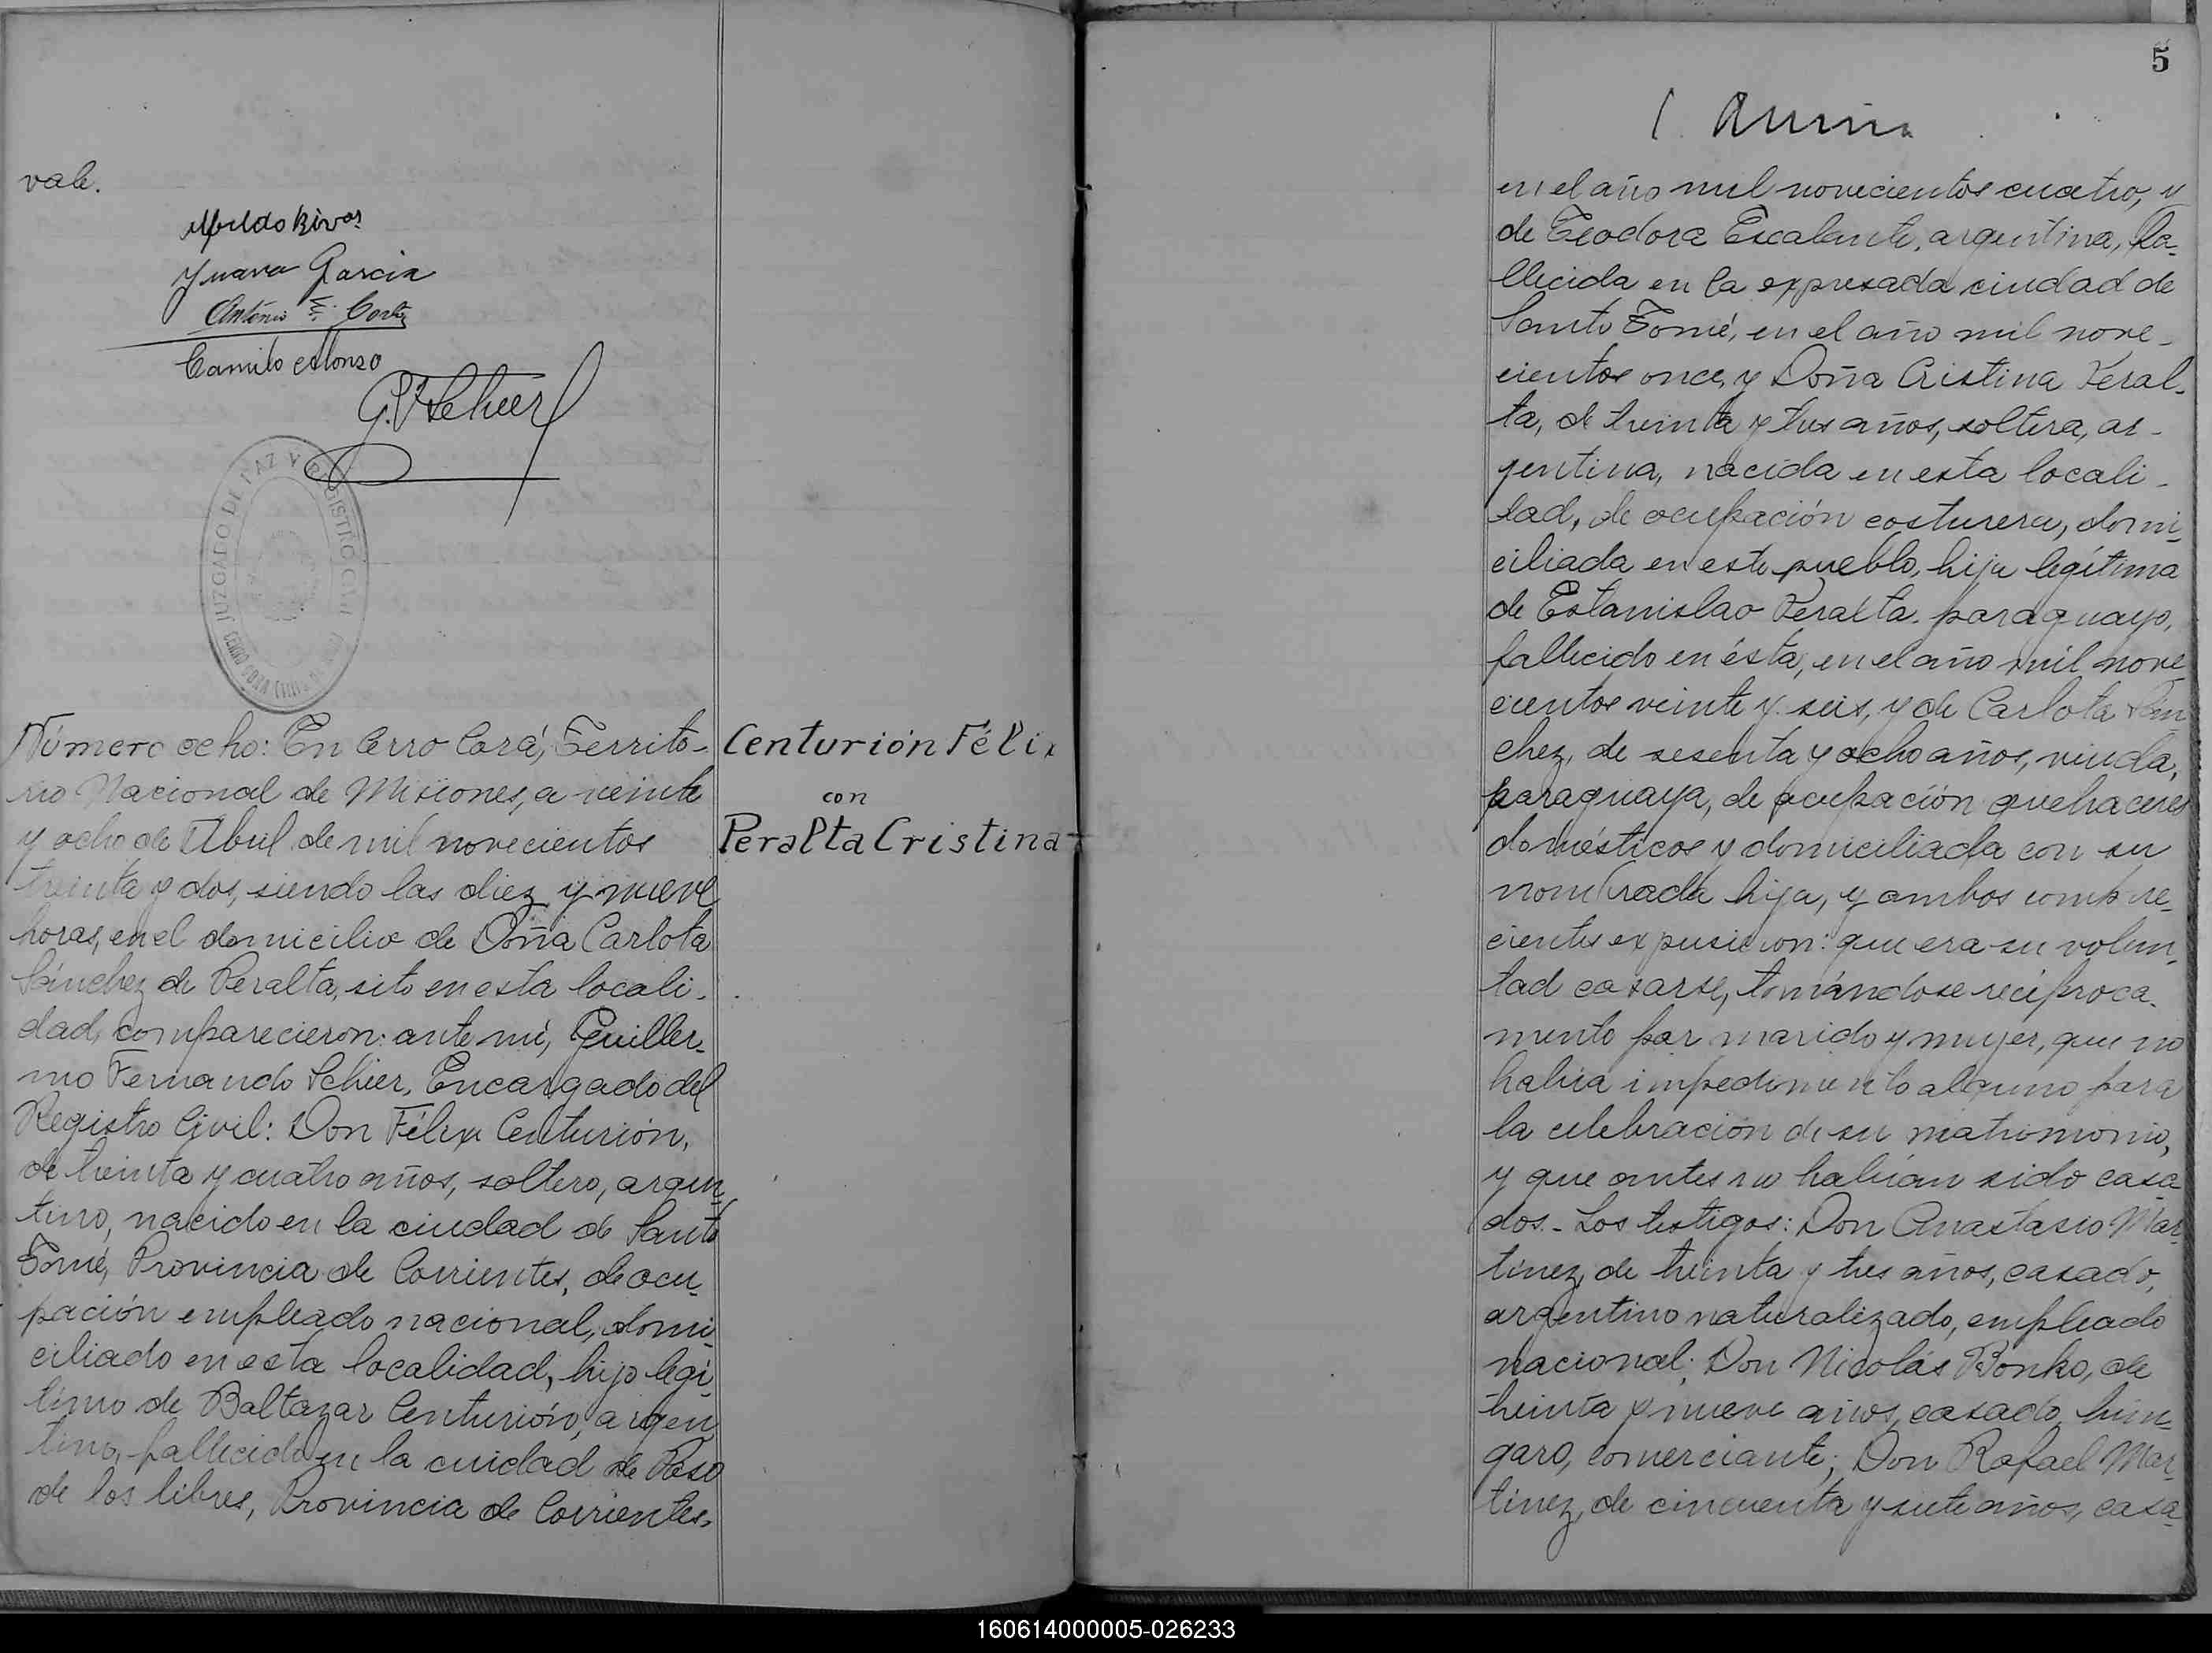 vale.
Juana Garcia
Camilo Alonso
G. F. Scheer
JUZGADO DE PAZ Y REGISTRO CIVIL
Número ocho: En Cerro Corá, Territo-
rio Nacional de Misiones, a veinte
y ocho de Abril de mil novecientos
treinta y dos, siendo las diez y nueve
horas, en el domicilio de Doña Carlota
Sánchez de Peralta, sito en esta locali-
dad, comparecieron: ante mí, Guiller-
mo Fernando Scheer, Encargado del
Registro Civil: Don Félix Centurión,
de treinta y cuatro años, soltero, argen-
tino, nacido en la ciudad de Santo
Tomé, Provincia de Corrientes, de ocu-
pación empleado nacional, domi-
ciliado en esta localidad, hijo legí-
timo de Baltazar Centurión, argen-
tino, fallecido en la cuidad de Paso
de los libres, Provincia de Corrientes,
Centurión Félix
con
Peralta Cristina
5
en el año mil novecientos cuatro, y
de Teodora Escalante, argentina, fa-
llecida en la expresada ciudad de
Santo Tomé, en el año mil nove-
cientos once, y Doña Cristina Peral-
ta, de treinta y tres años, soltera, ar-
gentina, nacida en esta locali-
dad, de ocupación costurera, domi-
ciliada en este pueblo, hija legítima
de Estanislao Peralta, paraguayo,
fallecido en ésta, en el año mil nove-
cientos veinte y seis, y de Carlota Sán-
chez, de sesenta y ocho años, viuda,
paraguaya, de ocupación quehaceres
domésticos y domiciliada con su
nombrada hija, y ambos compare-
cientes expusieron: que era su volun-
tad casarse, tomándose recíproca-
mente por marido y mujer, que no
había impedimento alguno para
la celebración de su matrimonio,
y que antes no habían sido casa-
dos.- Los testigos: Don Anastasio Mar-
tinez, de treinta y tres años, casado,
argentino naturalizado, empleado
nacional; Don Nicolás Bonko, de
treinta y nueve años, casado, hún-
garo, comerciante; Don Rafael Mar-
tinez, de cincuenta y siete años, casa-
160614000005-026233